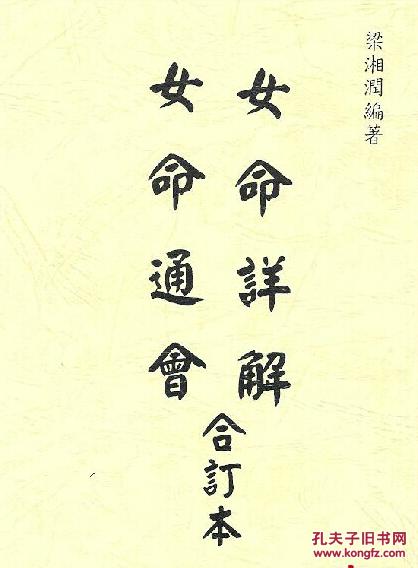 梁湘潤編著
女命詳解
女命通會
合訂本
孔夫子旧书网
www.kongfz.com